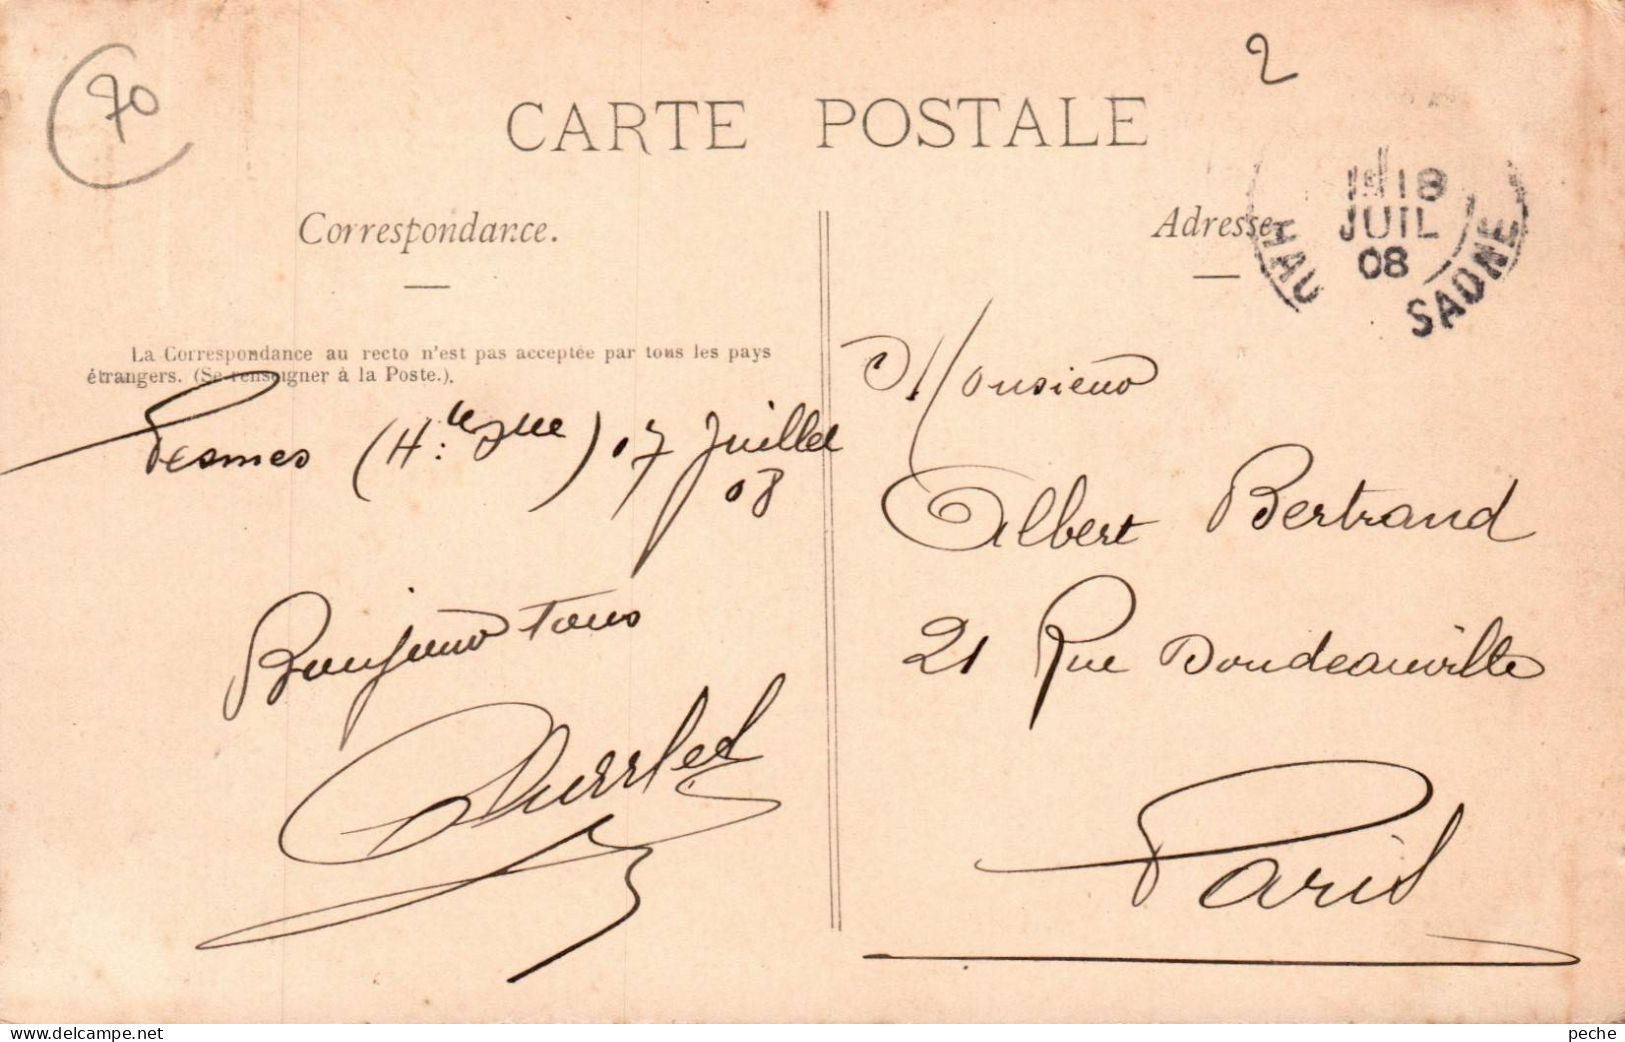 70
2
CARTE POSTALE
Correspondance.
Adresse
18
JUIL
08
HAU
SAONE
La Correspondance au recto n'est pas acceptée par tous les pays
étrangers. (Se renseigner à la Poste.).
Pesmes (H.te Sne) 17 Juillet
08
Bonjour Tous
Monsieur
Albert Bertrand
21 Rue Doudeauville
Paris
www.delcampe.net
peche